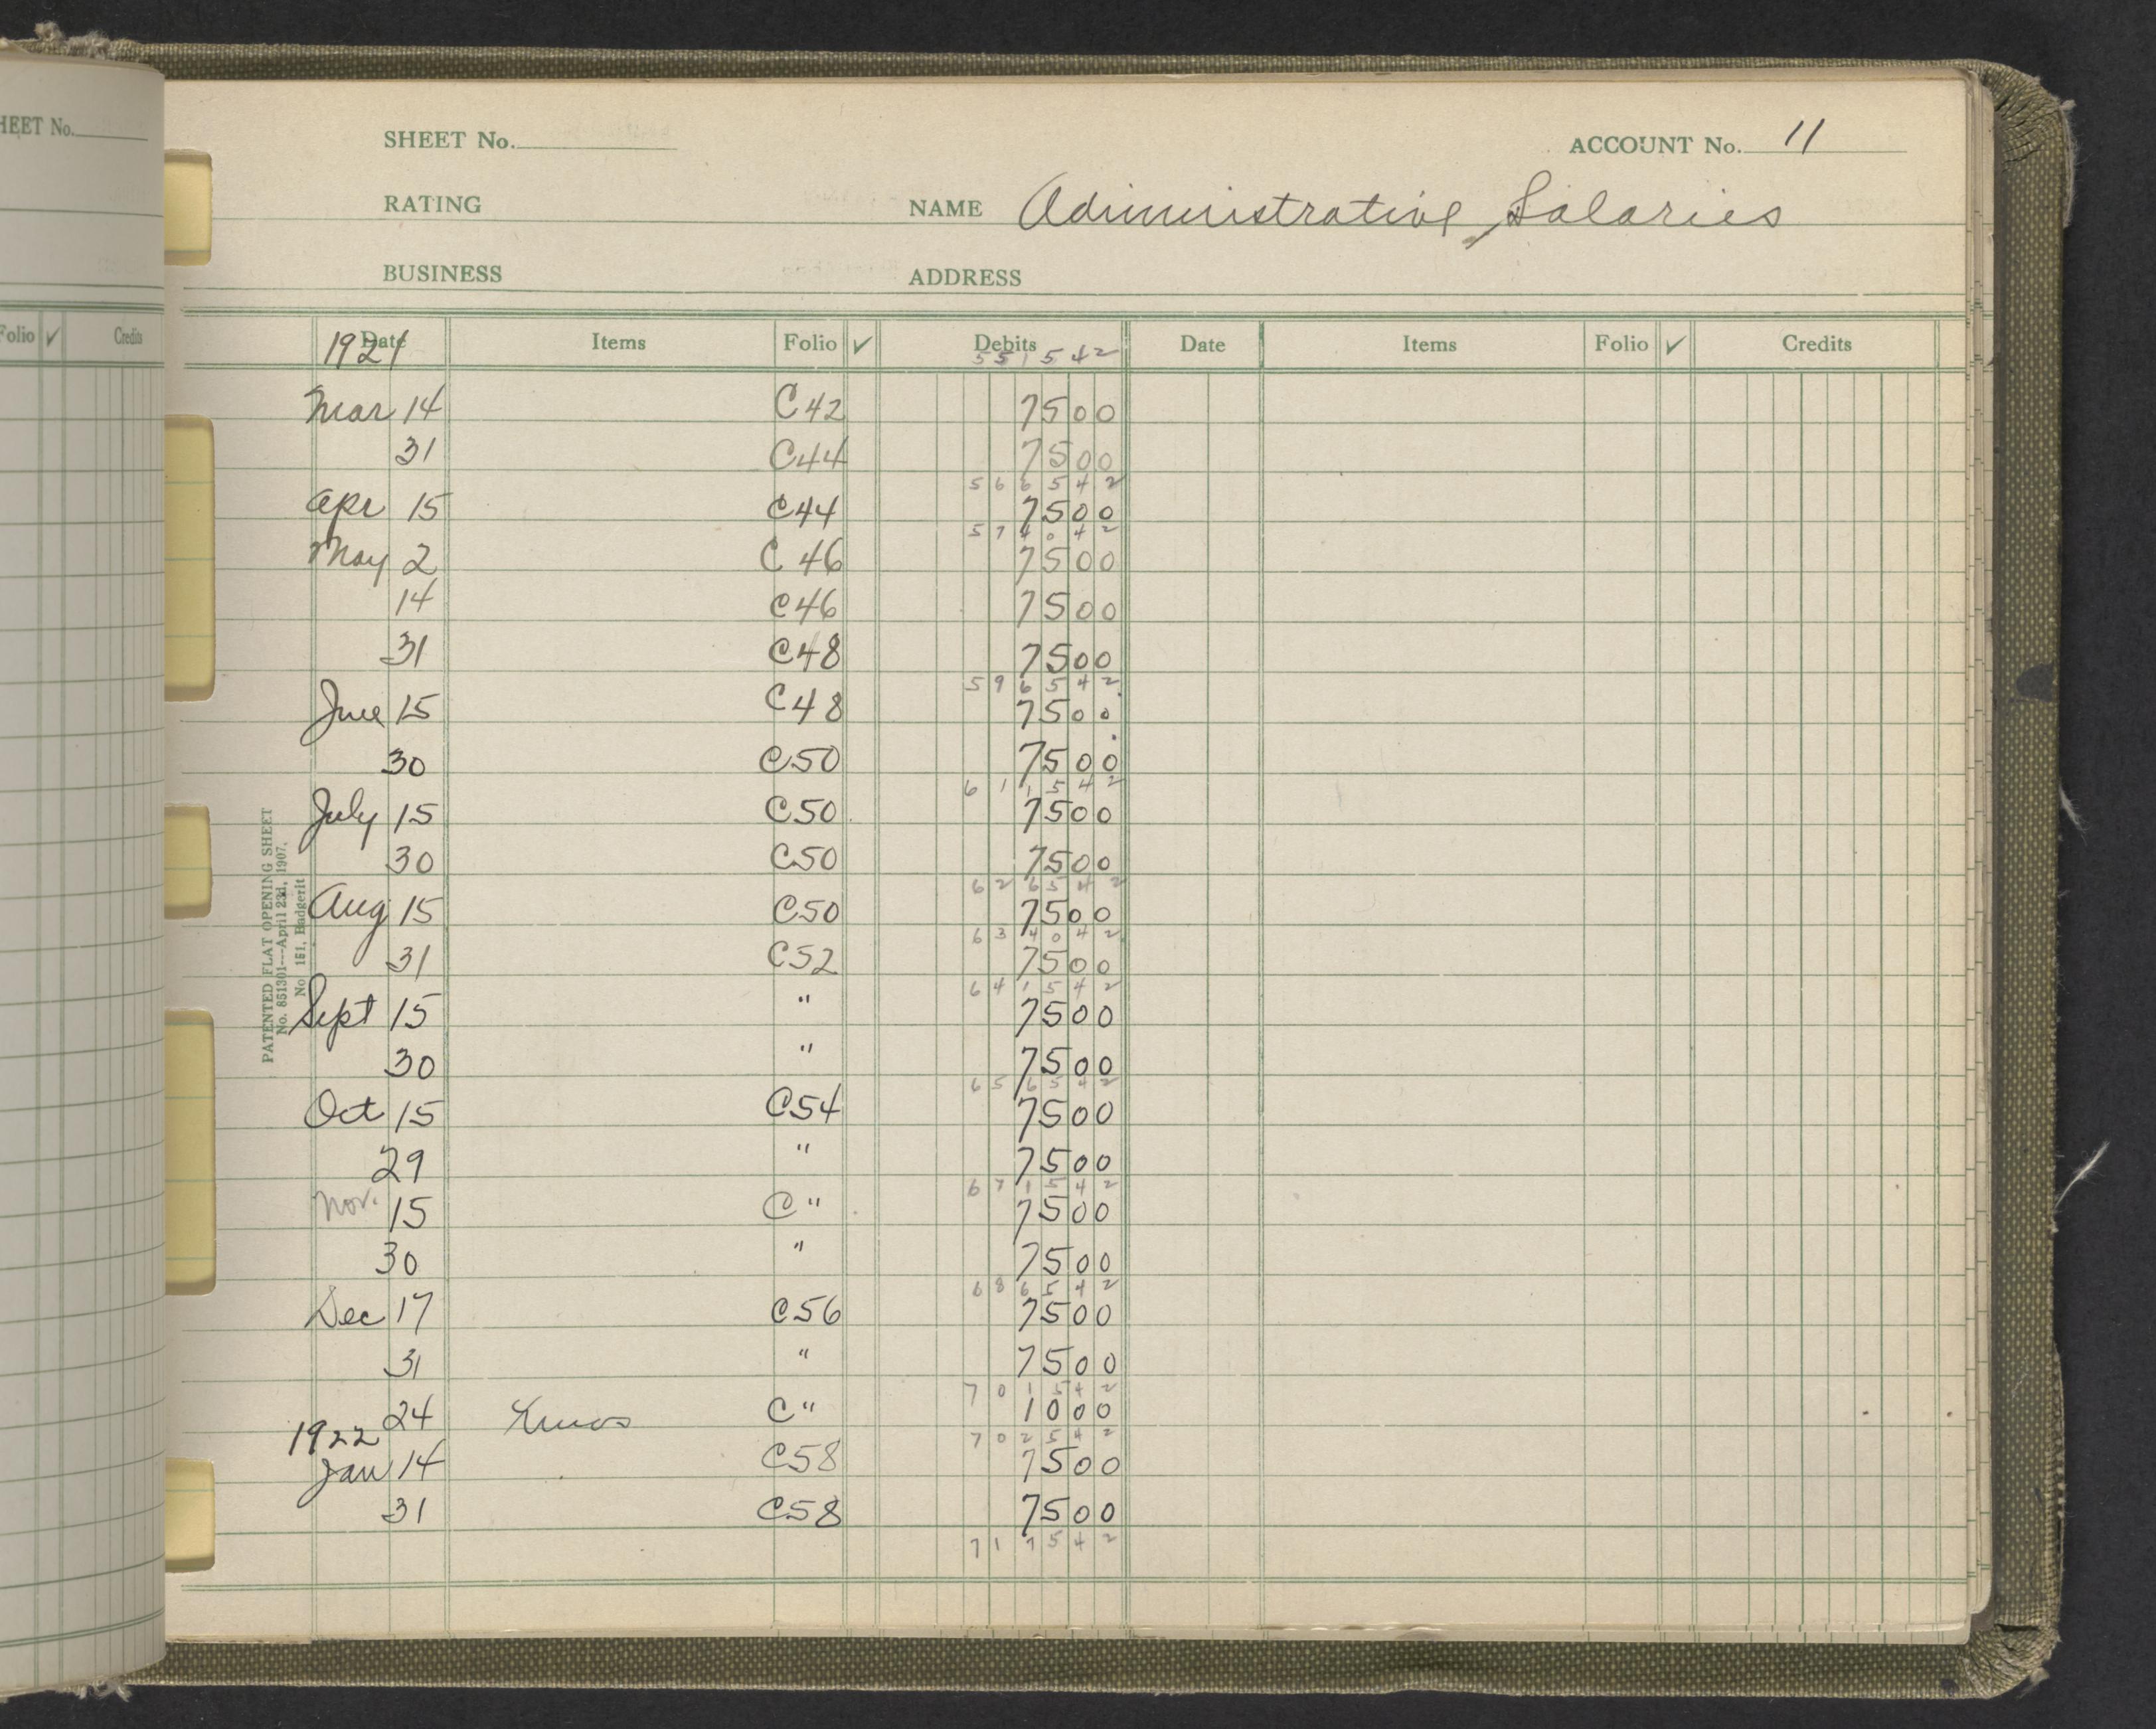 HEET No.
Folio ✓ Credits
SHEET No. ACCOUNT No. 11
RATING NAME Administrative Salaries
BUSINESS ADDRESS
Date Items Folio ✓ Debits Date Items Folio ✓ Credits
1921 551542
Mar 14 C42 7500
31 C44 7500
566542
Apr 15 C44 7500
574042
May 2 C46 7500
14 C46 7500
31 C48 7500
596542
June 15 C48 7500
30 C50 7500
611542
July 15 C50 7500
30 C50 7500
626542
Aug 15 C50 7500
634042
31 C52 7500
641542
Sept 15 " 7500
30 " 7500
656542
Oct 15 C54 7500
29 " 7500
671542
Nov. 15 C " 7500
30 " 7500
686542
Dec 17 C56 7500
31 " 7500
701542
24 Xmas C " 1000
1922 702542
Jan 14 C58 7500
31 C58 7500
717542
PATENTED FLAT OPENING SHEET
No. 851301---April 23d, 1907.
No 151, Badgerit